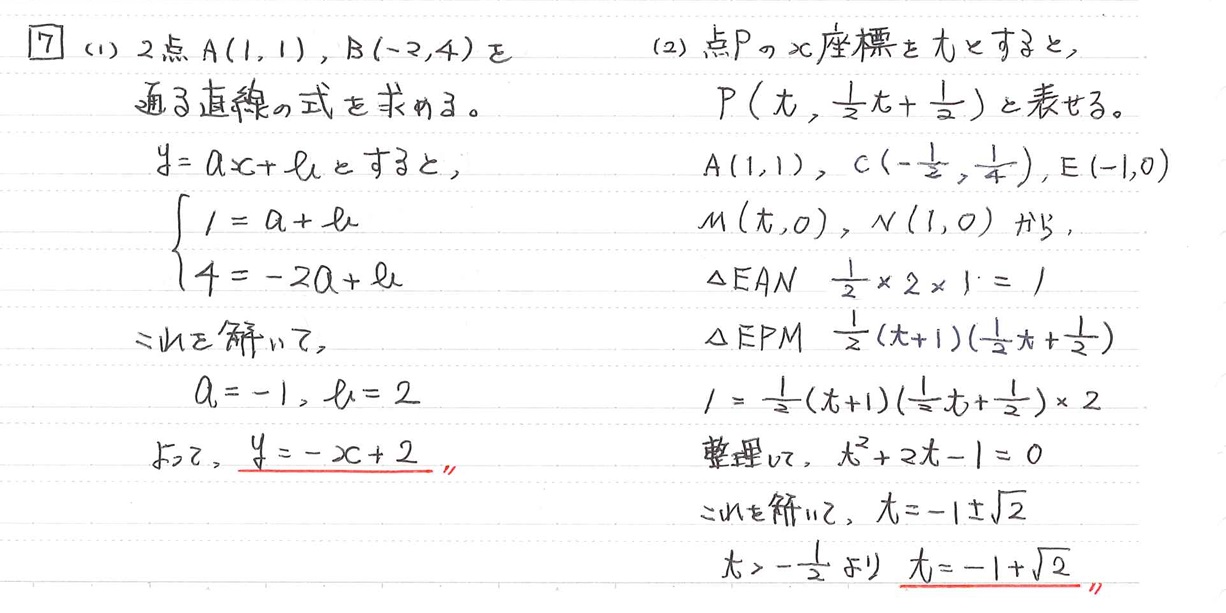 7 (1) 2点A(1,1), B(-2,4)を
通る直線の式を求める。
y=ax+bとすると,
1=a+b
4=-2a+b
これを解いて,
a=-1, b=2
よって, y=-x+2〃
(2) 点Pのx座標をtとすると,
P(t, 1/2t+1/2)と表せる。
A(1,1), C(-1/2, 1/4), E(-1,0)
M(t,0), N(1,0)から,
△EAN 1/2×2×1=1
△EPM 1/2(t+1)(1/2t+1/2)
1=1/2(t+1)(1/2t+1/2)×2
整理して, t²+2t-1=0
これを解いて, t=-1±√2
t>-1/2より t=-1+√2〃